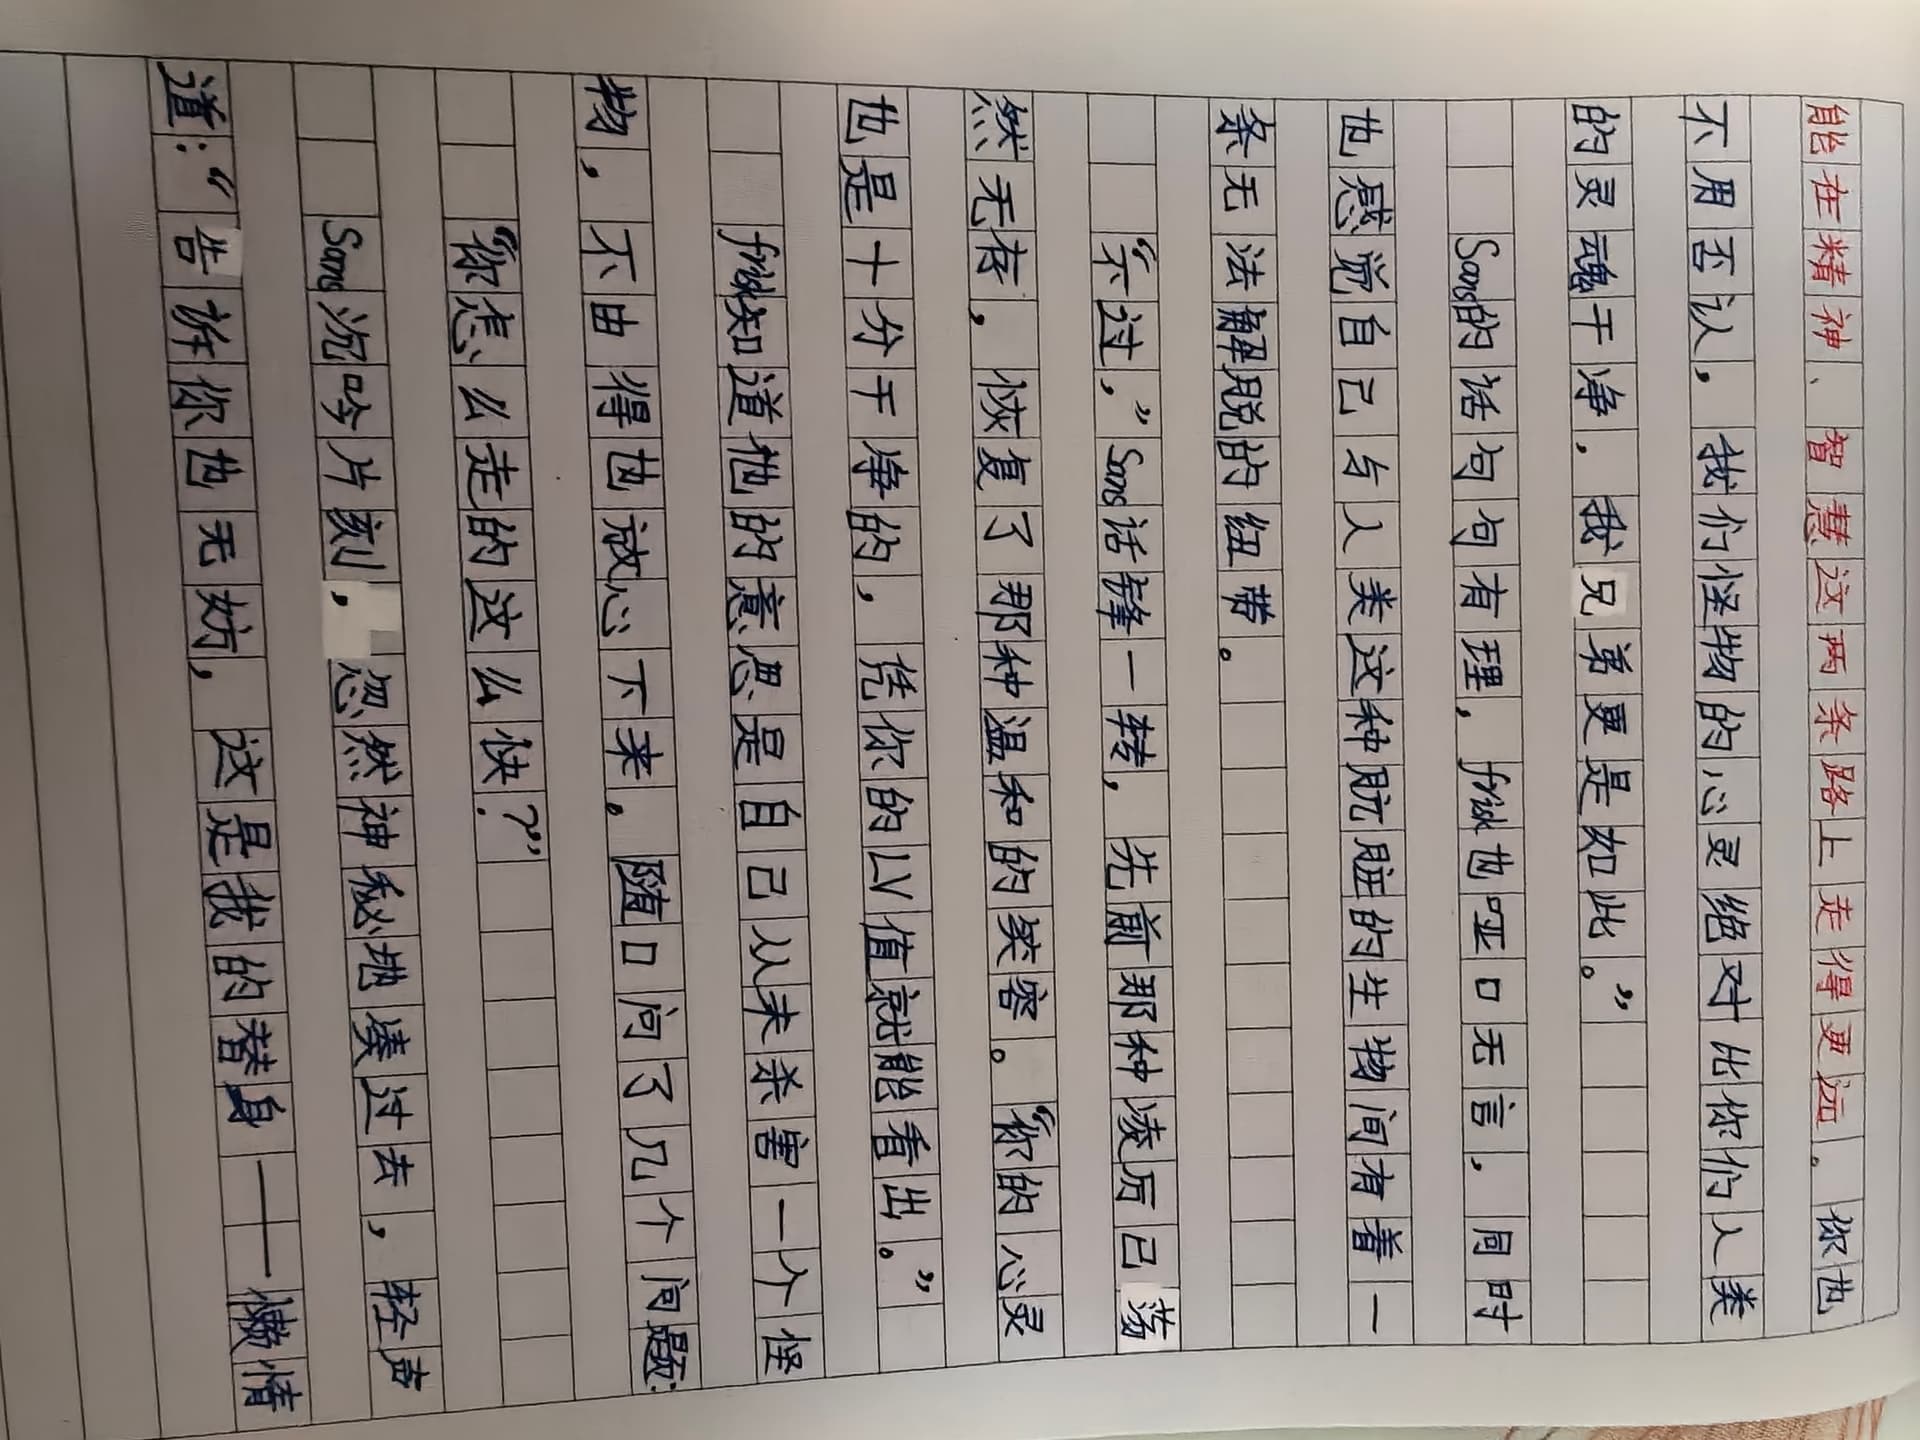 能在精神、智慧这两条路上走得更远。你也
不用否认，我们怪物的心灵绝对比你们人类
的灵魂干净，我兄弟更是如此。”
Sans的话句句有理，frisk也哑口无言，同时
也感觉自己与人类这种肮脏的生物间有着一
条无法解脱的纽带。
“不过，”Sans话锋一转，先前那种凌厉已荡
然无存，恢复了那种温和的笑容。“你的心灵
也是十分干净的，凭你的LV值就能看出。”
frisk知道他的意思是自己从未杀害一个怪
物，不由得也放心下来。随口问了几个问题：
“你怎么走的这么快？”
Sans沉吟片刻，忽然神秘地凑过去，轻声
道：“告诉你也无妨，这是我的替身——懒惰